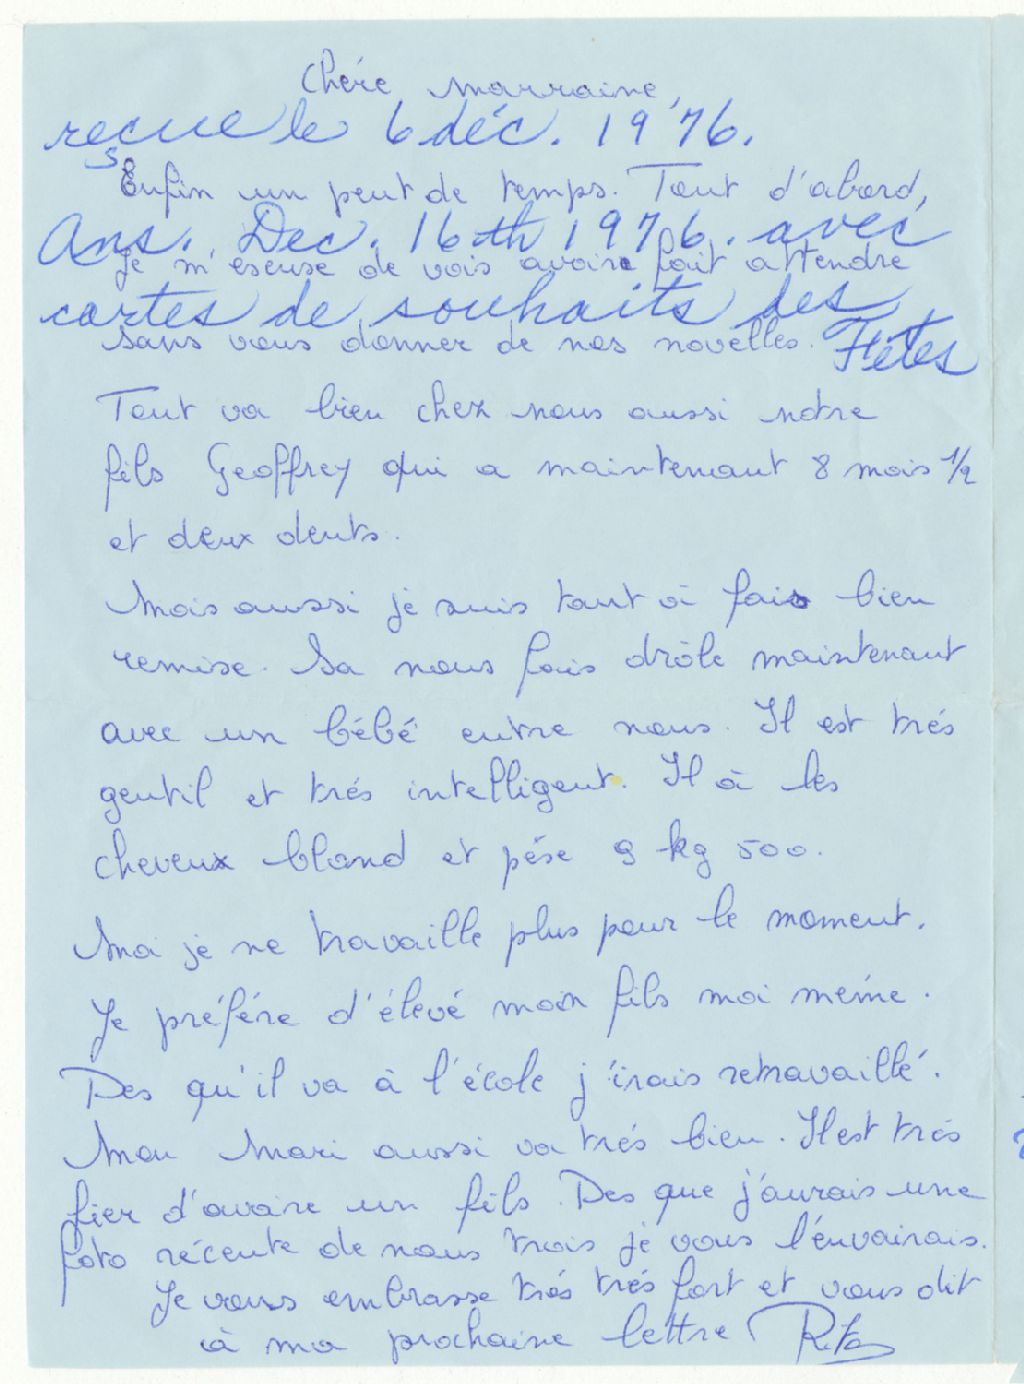 Chére marraine,
recue le 6 déc. 1976.
Enfin un peut de temps. Tout d'abord,
Ans. Dec. 16th 1976. avec
Je m'escuse de vois avoire fait attendre
cartes de souhaits des
sans vous donner de nos novelles.
Fêtes
Tout va bien chez nous aussi notre
fils Geoffrey qui a maintenant 8 mois 1/2
et deux dents.
Mois aussi je suis tout à fais bien
remise. Sa nous fais drôle maintenant
avec un bébé entre nous. Il est trés
gentil et trés intelligent. Il à les
cheveux blond et pése 9 kg 500.
Moi je ne travaille plus pour le moment.
Je préfére d'élevé mon fils moi meme.
Des qu'il va à l'école j'irais retravaillé.
Mon Mari aussi va trés bien. Il est trés
fier d'avoire un fils. Des que j'aurais une
foto récente de nous trois je vous l'envairais.
Je vous embrasse trés trés fort et vous dit
à ma prochaine lettre Rita